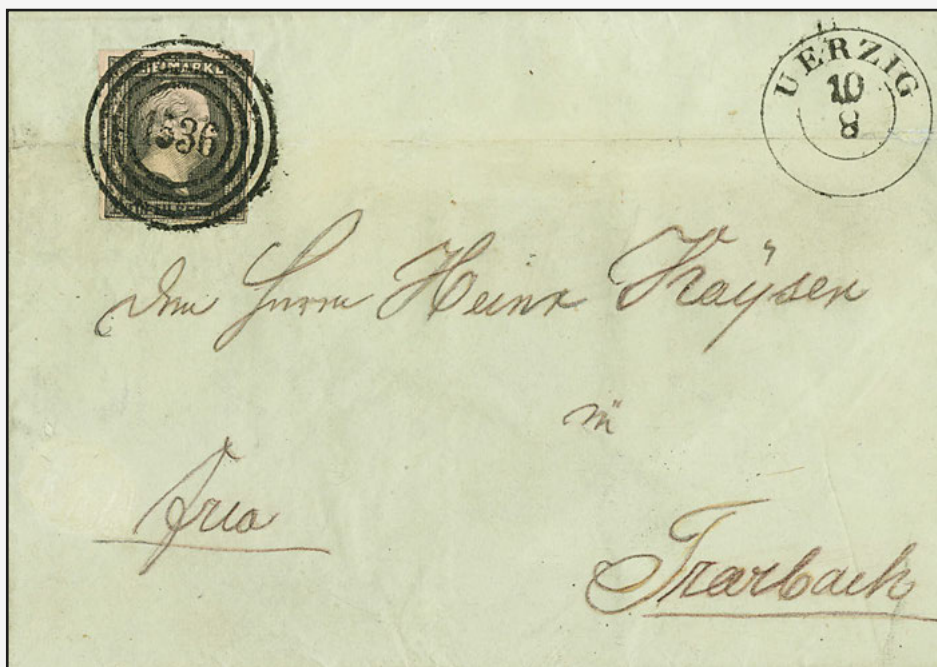 FREIMARKE
1536
UERZIG
10
8
Herrn Heinr Kaÿser
in
Trarbach